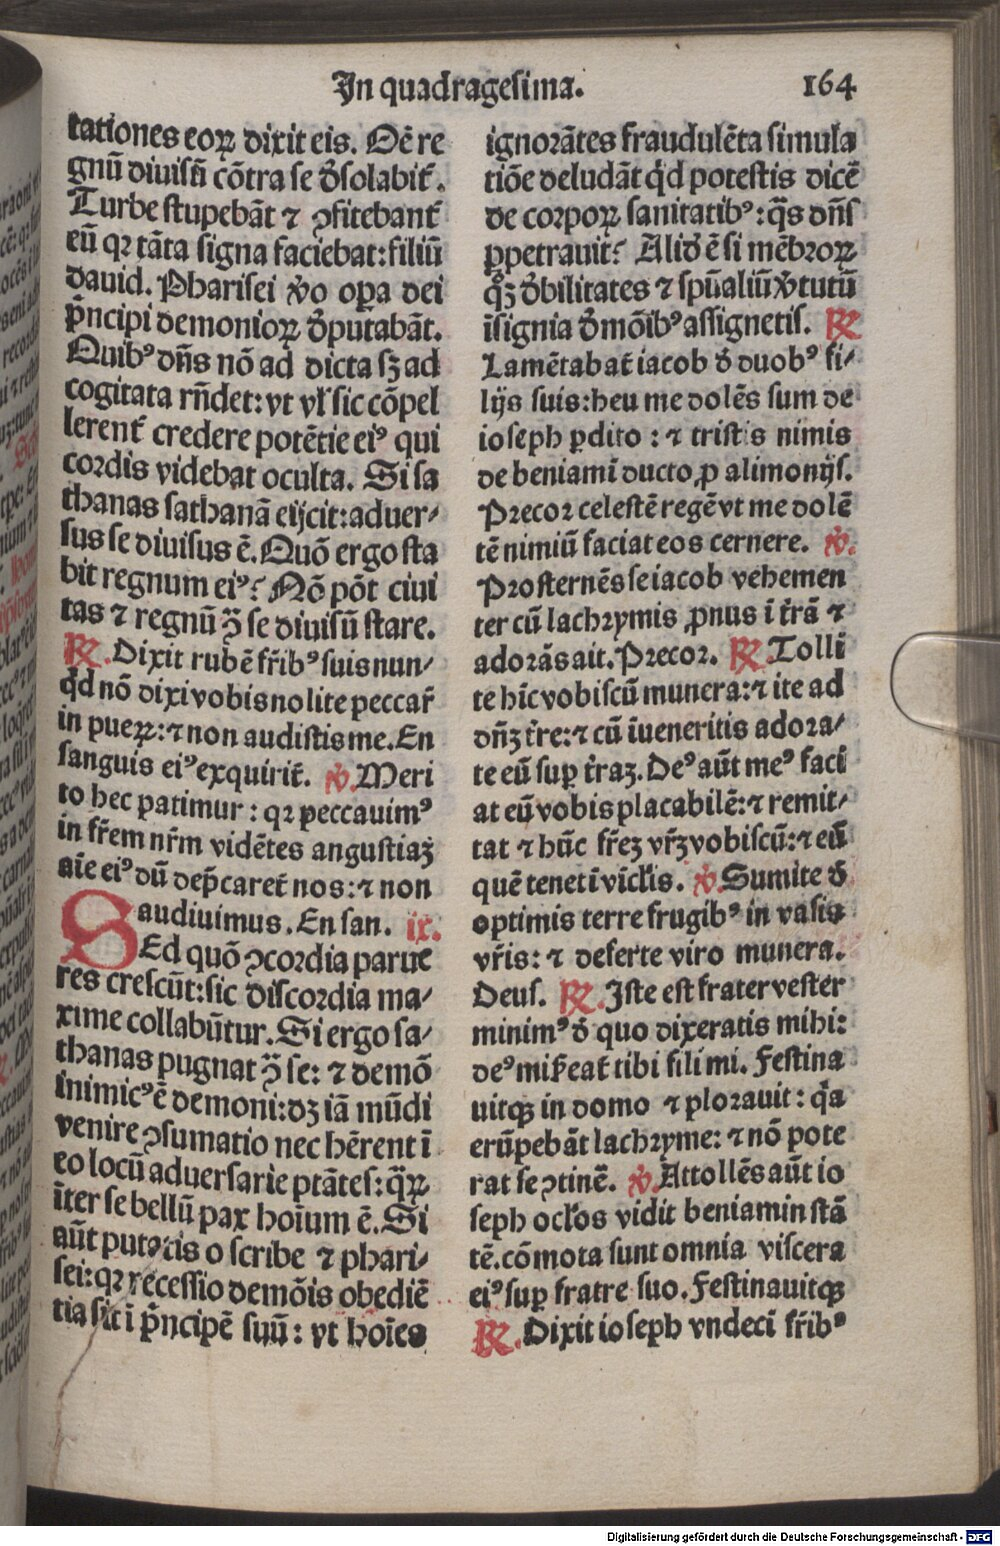 In quadragesima.
164
tationes eoꝝ dixit eis. Oē re
gnū diuisū cōtra se dͤsolabit᷑.
Turbe stupebāt ⁊ ꝯfitebant᷑
eū qꝛ tāta signa faciebat: filiū
dauid. Pharisei v̊o oꝑa dei
pͥncipi demonioꝝ dͤputabāt.
Quibꝰ dn̄s nō ad dicta sꝫ ad
cogitata rn̄det: vt vl̓ sic cōpel
lerent᷑ credere potētie eiꝰ qui
cordis videbat oculta. Si sa
thanas sathanā eijcit: aduer⸗
sus se diuisus ē. Quō ergo sta
bit regnum eiꝰ? Nō pōt ciui
tas ⁊ regnū ꝯͣ se diuisū stare.
℟. Dixit rubē fr̄ibꝰ suis nun⸗
qͥd nō dixi vobis nolite peccar̄
in pueꝝ: ⁊ non audistis me. En
sanguis eiꝰ exquirit᷑. ℣. Meri
to hec patimur: qꝛ peccauimꝰ
in fr̄em nr̄m vidētes angustiaꝫ
aīe eiꝰ dū dep̄caret᷑ nos: ⁊ non
audiuimus. En san. ix.
SEd quō ꝯcordia parue
res crescūt: sic discordia ma⸗
xime collabūtur. Si ergo sa⸗
thanas pugnat ꝯͣ se: ⁊ demō
inimicꝰ ē demoni: dꝫ iā mūdi
venire ꝯsumatio nec hērent ī
eo locū aduersarie ptātes: qͣꝝ
īter se bellū pax hoīum ē. Si
aūt putatis o scribe ⁊ phari⸗
sei: qꝛ recessio demōis obediē
tia sit ī pͥncipē suū: vt hoīes
ignorātes fraudulēta simula
tiōe deludāt qͥd potestis dicē
de corpoꝝ sanitatibꝰ: qͣs dn̄s
ꝑpetrauit? Aliđ ē si mēbroꝝ
qͦꝫ dͤbilitates ⁊ spūaliū v̓tutū
īsignia dͤmōibꝰ assignetis. ℟
Lamētabat᷑ iacob dͤ duobꝰ fi⸗
lijs suis: heu me dolēs sum de
ioseph ꝑdito: ⁊ tristis nimis
de beniamī ducto ꝓ alimonijs.
Precor celestē regē vt me dolē
tē nimiū faciat eos cernere. ℣.
Prosternēs se iacob vehemen
ter cū lachrymis ꝓnus ī tr̄ā ⁊
adorās ait. Precor. ℟. Tolli
te hīc vobiscū munera: ⁊ ite ad
dn̄ꝫ tr̄e: ⁊ cū īueneritis adora⸗
te eū suꝑ tr̄aꝫ. Deꝰ aūt meꝰ faci
at eū vobis placabilē: ⁊ remit⸗
tat ⁊ hūc fr̄eꝫ vr̄ꝫ vobiscū: ⁊ eū
quē tenet ī vīcl̓is. ℣. Sumite dͤ
optimis terre frugibꝰ in vasis
vr̄is: ⁊ deferte viro munera.
Deus. ℟. Iste est frater vester
minimꝰ dͤ quo dixeratis mihi:
deꝰ mis̄eat᷑ tibi fili mi. Festina
uitqꝫ in domo ⁊ plorauit: qͣ
erūpebāt lachryme: ⁊ nō pote
rat se ꝯtinē. ℣. Attollēs aūt io
seph ocl̓os vidit beniamin stā
tē. cōmota sunt omnia viscera
eiꝰ suꝑ fratre suo. Festinauitqꝫ
℟. Dixit ioseph vndecī fr̄ibꝰ
Digitalisierung gefördert durch die Deutsche Forschungsgemeinschaft - DFG